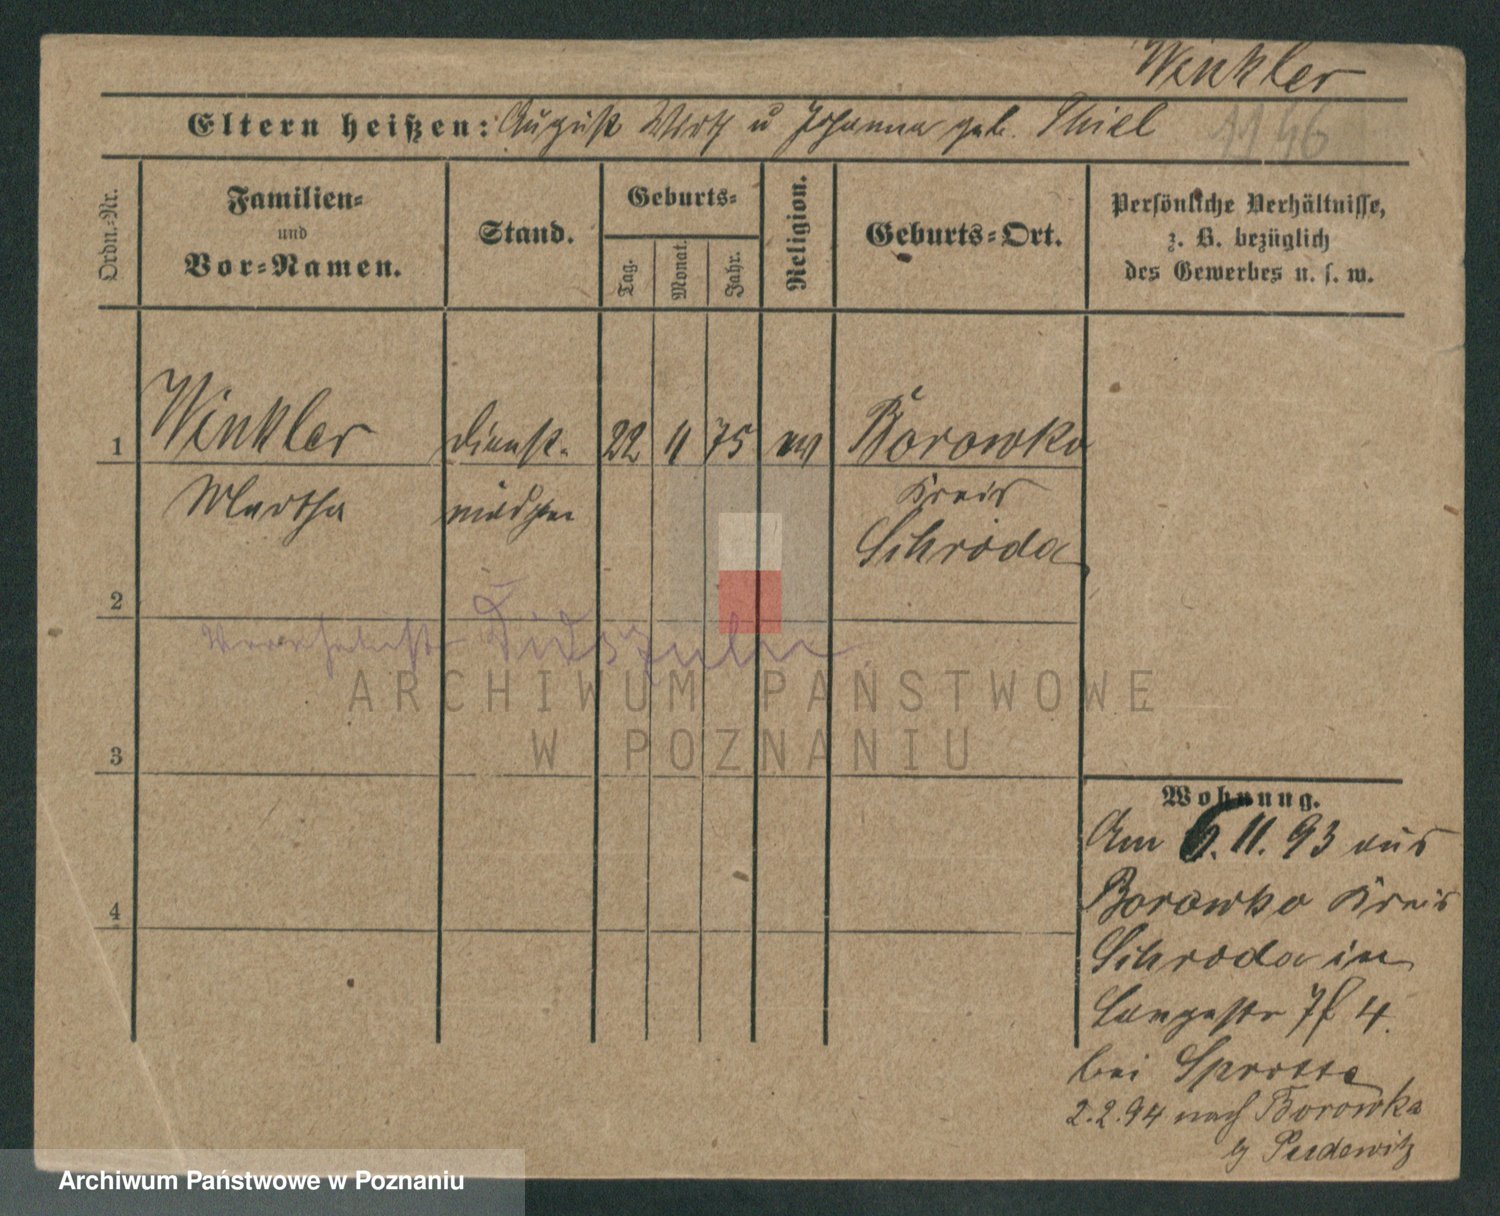 Winkler
Eltern heißen: August Wirth u Johanna geb. Thiel
1146
Ordn.-Nr.
Familien-
und
Vor-Namen.
Stand.
Geburts-
Tag.
Monat.
Jahr.
Religion.
Geburts-Ort.
Persönliche Verhältnisse,
z. B. bezüglich
des Gewerbes u. s. w.
1
Winkler
Dienst-
22
11
75
ev
Borowko
Martha
mädchen
Kreis
Schroda
2
Verehelichte
3
4
Wohnung.
Am 6.11.93 aus
Borowko Kreis
Schroda in
Langestr 7 4.
bei
2.2.94 nach Borowka
b/ Pudewitz
ARCHIWUM PAŃSTWOWE
W POZNANIU
Archiwum Państwowe w Poznaniu